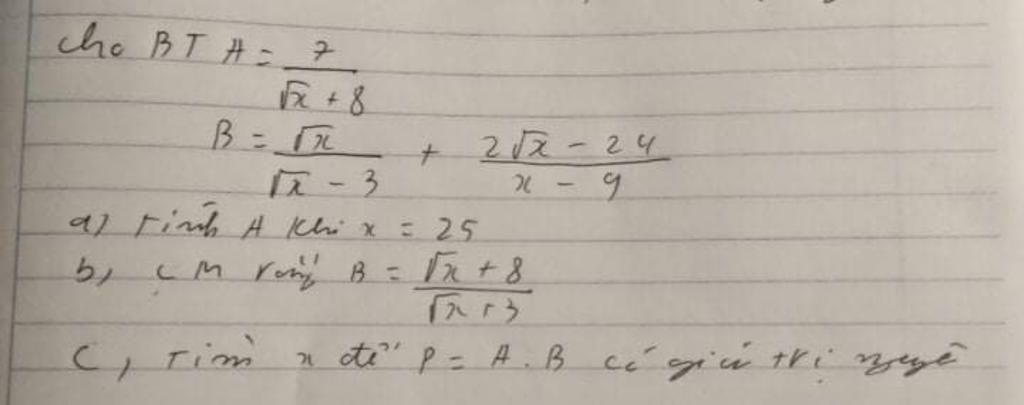 Cho BT A = 7 / (√x + 8)
B = √x / (√x - 3) + (2√x - 24) / (x - 9)
a) Tính A khi x = 25
b, CM rằng B = (√x + 8) / (√x + 3)
C, Tìm x để P = A . B có giá trị nguyê